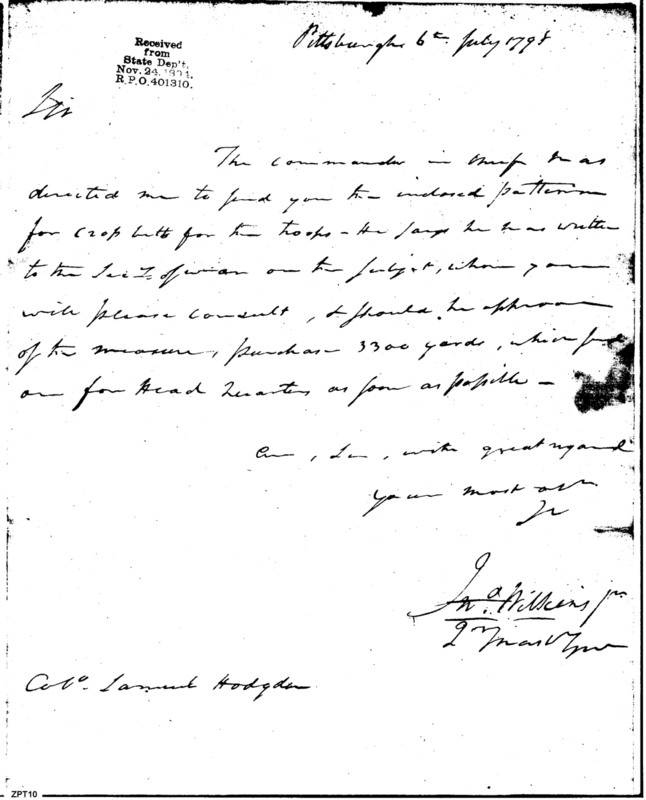 Pittsburgh 6th July 1798
Received
from
State Dep't.
Nov. 24, 1894.
R.P.O. 401310.
Sir
The commander in chief has
directed me to send you the inclosed pattern
for cross belts for the troops – He says he has written
to the Secy of war on the subject, whom you
will please consult, & should he approve
of the measure, purchase 3300 yards, which send
on for Head Quarters as soon as possible –
am, Sir, with great regard
your most obt
Jno. Wilkins jnr
Qr Mastr Genl
Colo. Samuel Hodgdon
ZPT10